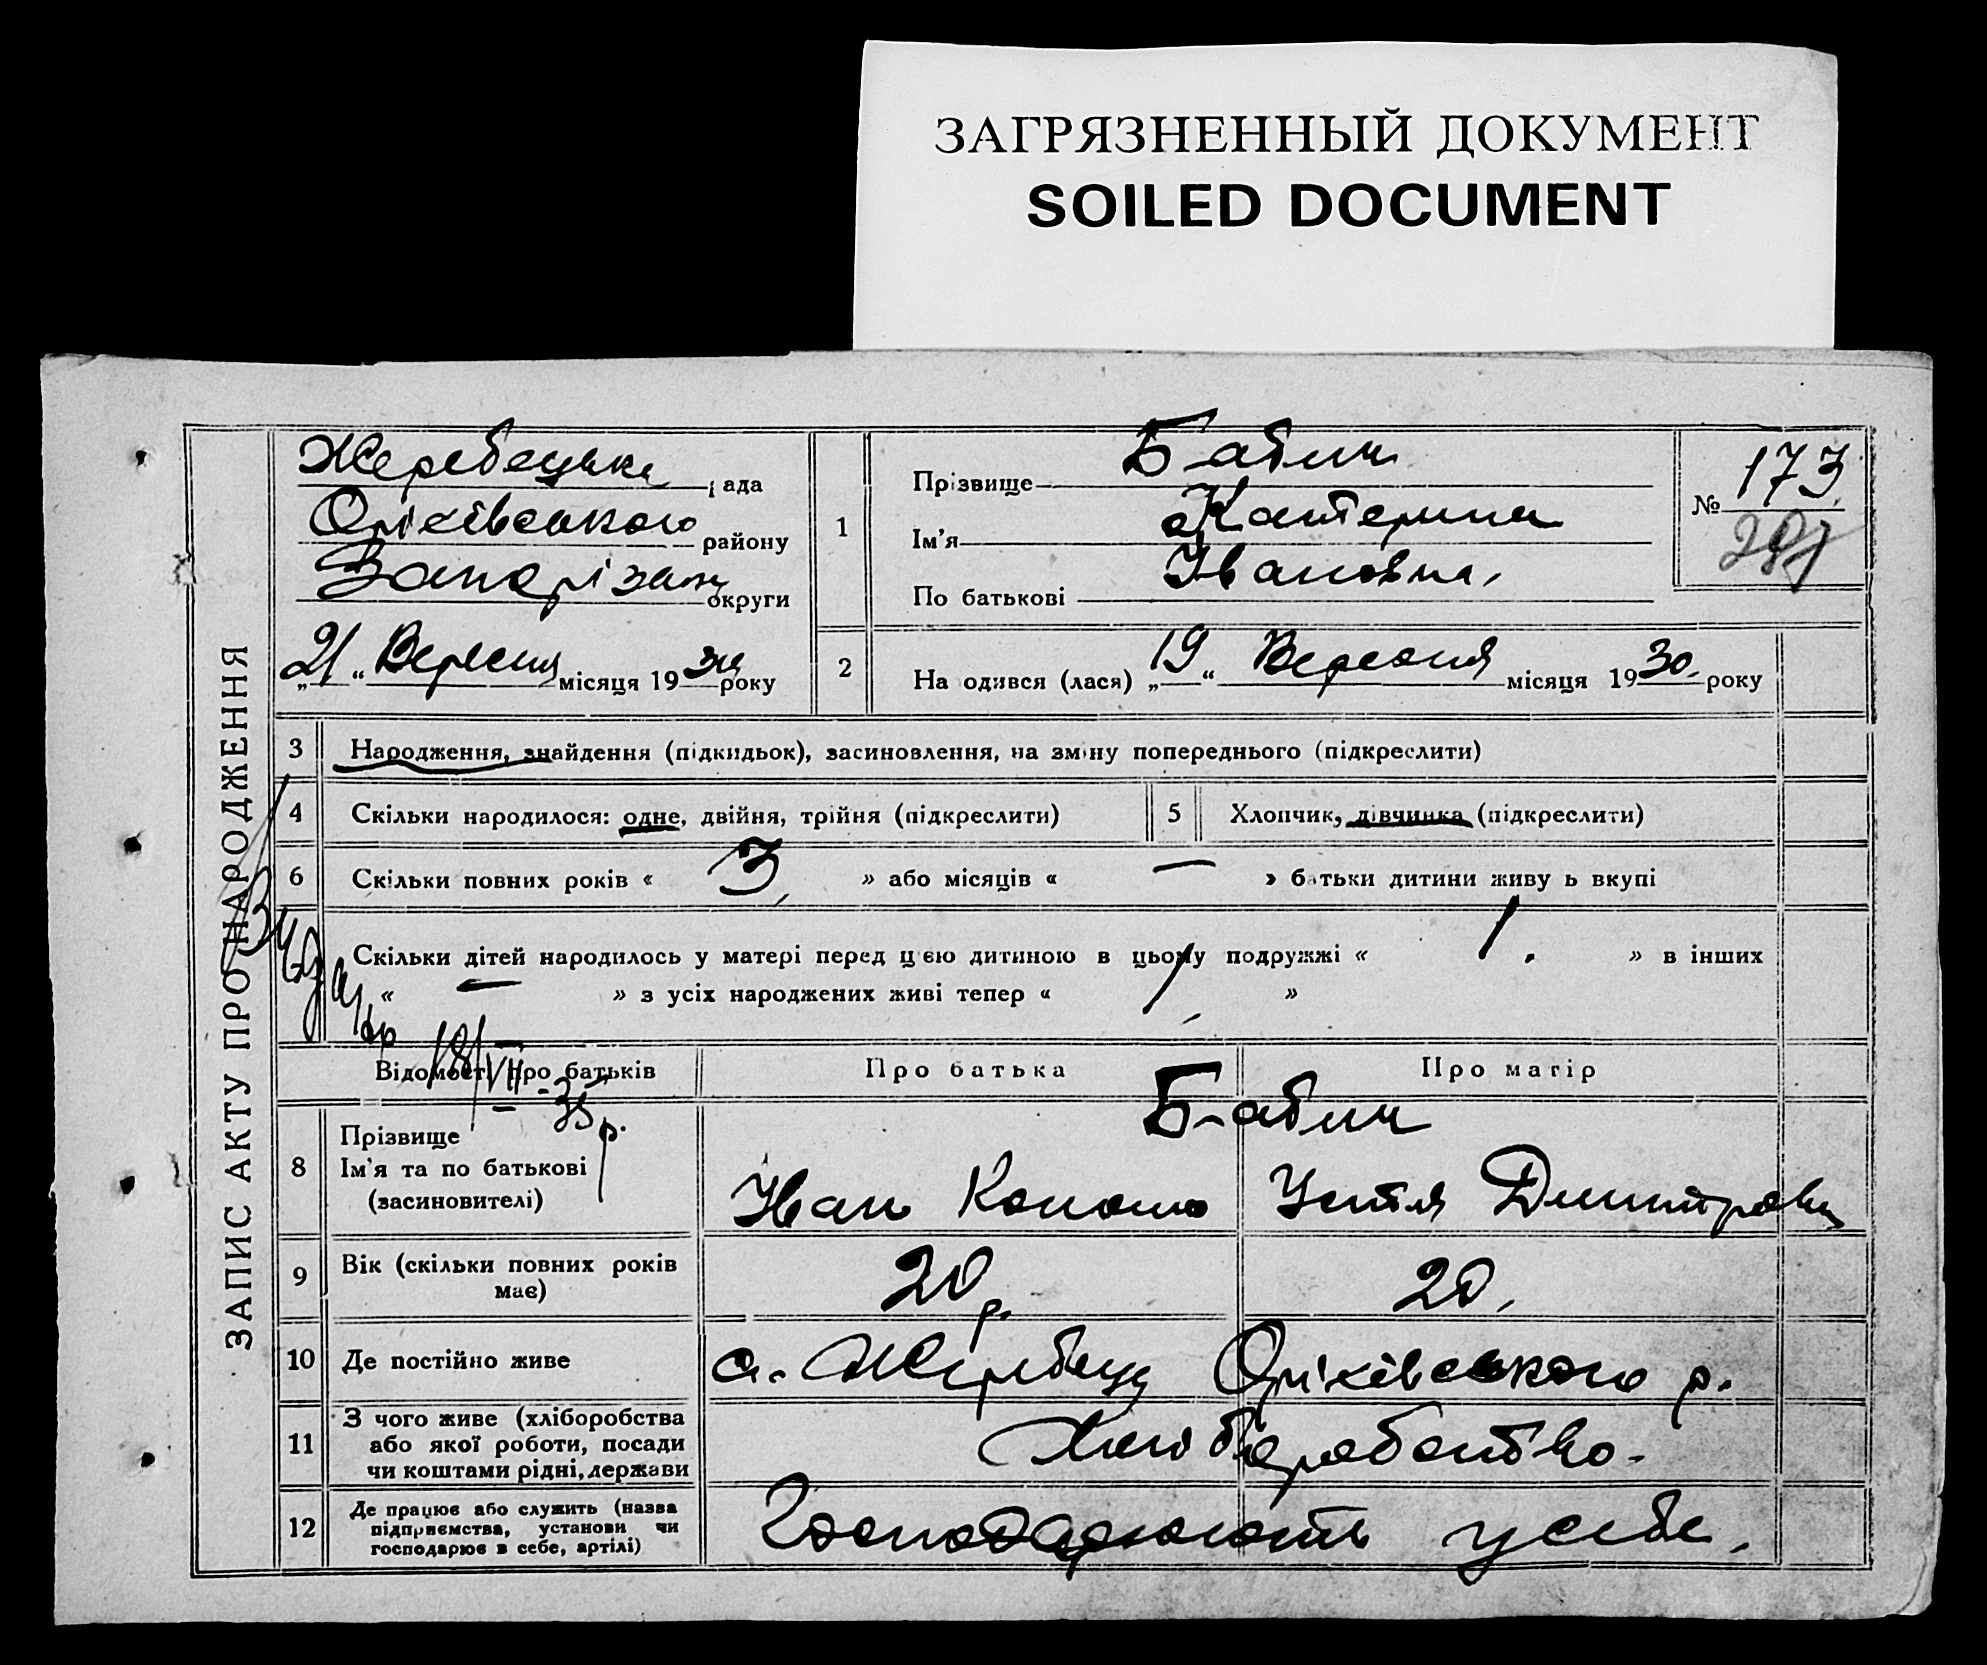 ЗАГРЯЗНЕННЫЙ ДОКУМЕНТ
SOILED DOCUMENT
ЗАПИС АКТУ ПРО НАРОДЖЕННЯ
Жеребецька рада
Оріхівського району
Запорізьк округи
„21“ Вересня місяця 1930 року
1
Прізвище Бабич
Ім'я Катерина
По батькові Івановна.
№ 173
2
На одився (лася) „19“ Вересня місяця 1930. року
3 Народження, знайдення (підкидьок), засиновлення, на зміну попереднього (підкреслити)
4 Скільки народилося: одне, двійня, трійня (підкреслити)
5 Хлопчик, дівчинка (підкреслити)
6 Скільки повних років « 3 » або місяців « — » батьки дитини живу ь вкупі
Скільки дітей народилось у матері перед цією дитиною в цьому подружжі « 1. » в інших
« — » з усіх народжених живі тепер « 1 »
18/VII-35 р.
Відомості про батьків Про батька Про матір
8 Прізвище
Ім'я та по батькові
(засиновителі)
Бабич
Іван Кононо Устя Дмитровн
9 Вік (скільки повних років
має)
20 р. 20.
10 Де постійно живе с. Жеребець Оріхівського р.
11 З чого живе (хліборобства
або якої роботи, посади
чи коштами рідні, держави
Хліборобство.
12 Де працює або служить (назва
підприємства, установи чи
господарює в себе, артілі)
Господарюють у себе.